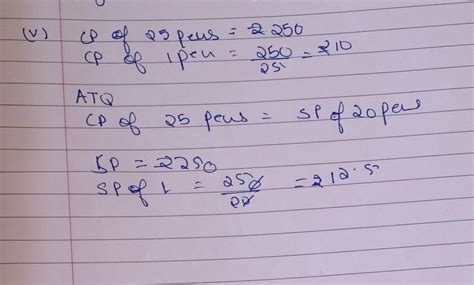 (V) CP of 25 pens = ₹250
CP of 1 pen = 250/25 = ₹10
ATQ
CP of 25 pens = SP of 20 pens
SP = ₹250
SP of 1 = 250/20 = ₹12.5